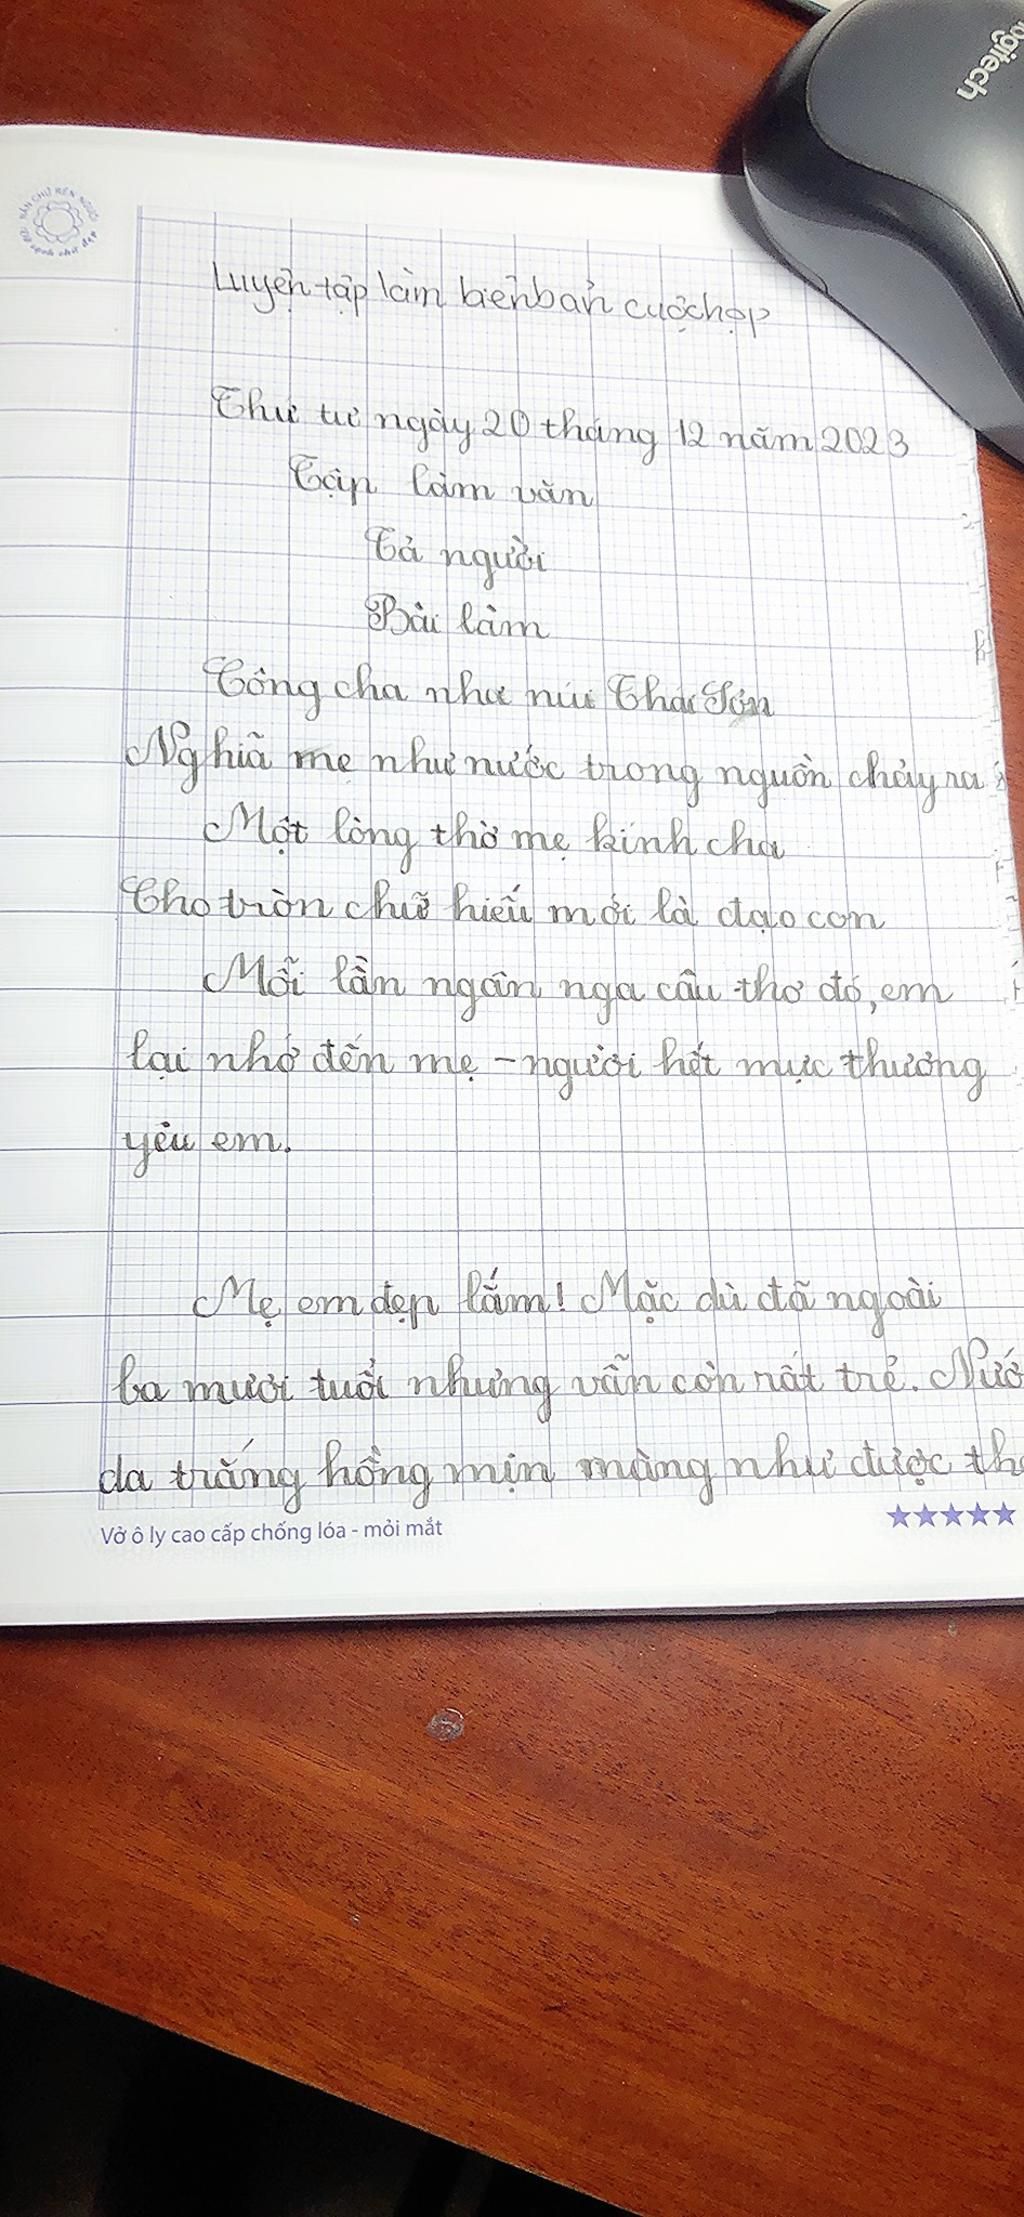 logitech
RÈN CHỮ RÈN NGƯỜI
Vở sạch chữ đẹp
Luyện tập làm biên bản cuộc họp
Thứ tư ngày 20 tháng 12 năm 2023
Tập làm văn
Tả người
Bài làm
Công cha như núi Thái Sơn
Nghiã mẹ như nước trong nguồn chảy ra
Một lòng thờ mẹ kính cha
Cho tròn chữ hiếu mới là đạo con
Mỗi lần ngân nga câu thơ đó, em
lại nhớ đến mẹ - người hết mực thương
yêu em.
Mẹ em đẹp lắm! Mặc dù đã ngoài
ba mươi tuổi nhưng vẫn còn rất trẻ. Nướ
da trắng hồng mịn màng như được th
Vở ô ly cao cấp chống lóa - mỏi mắt